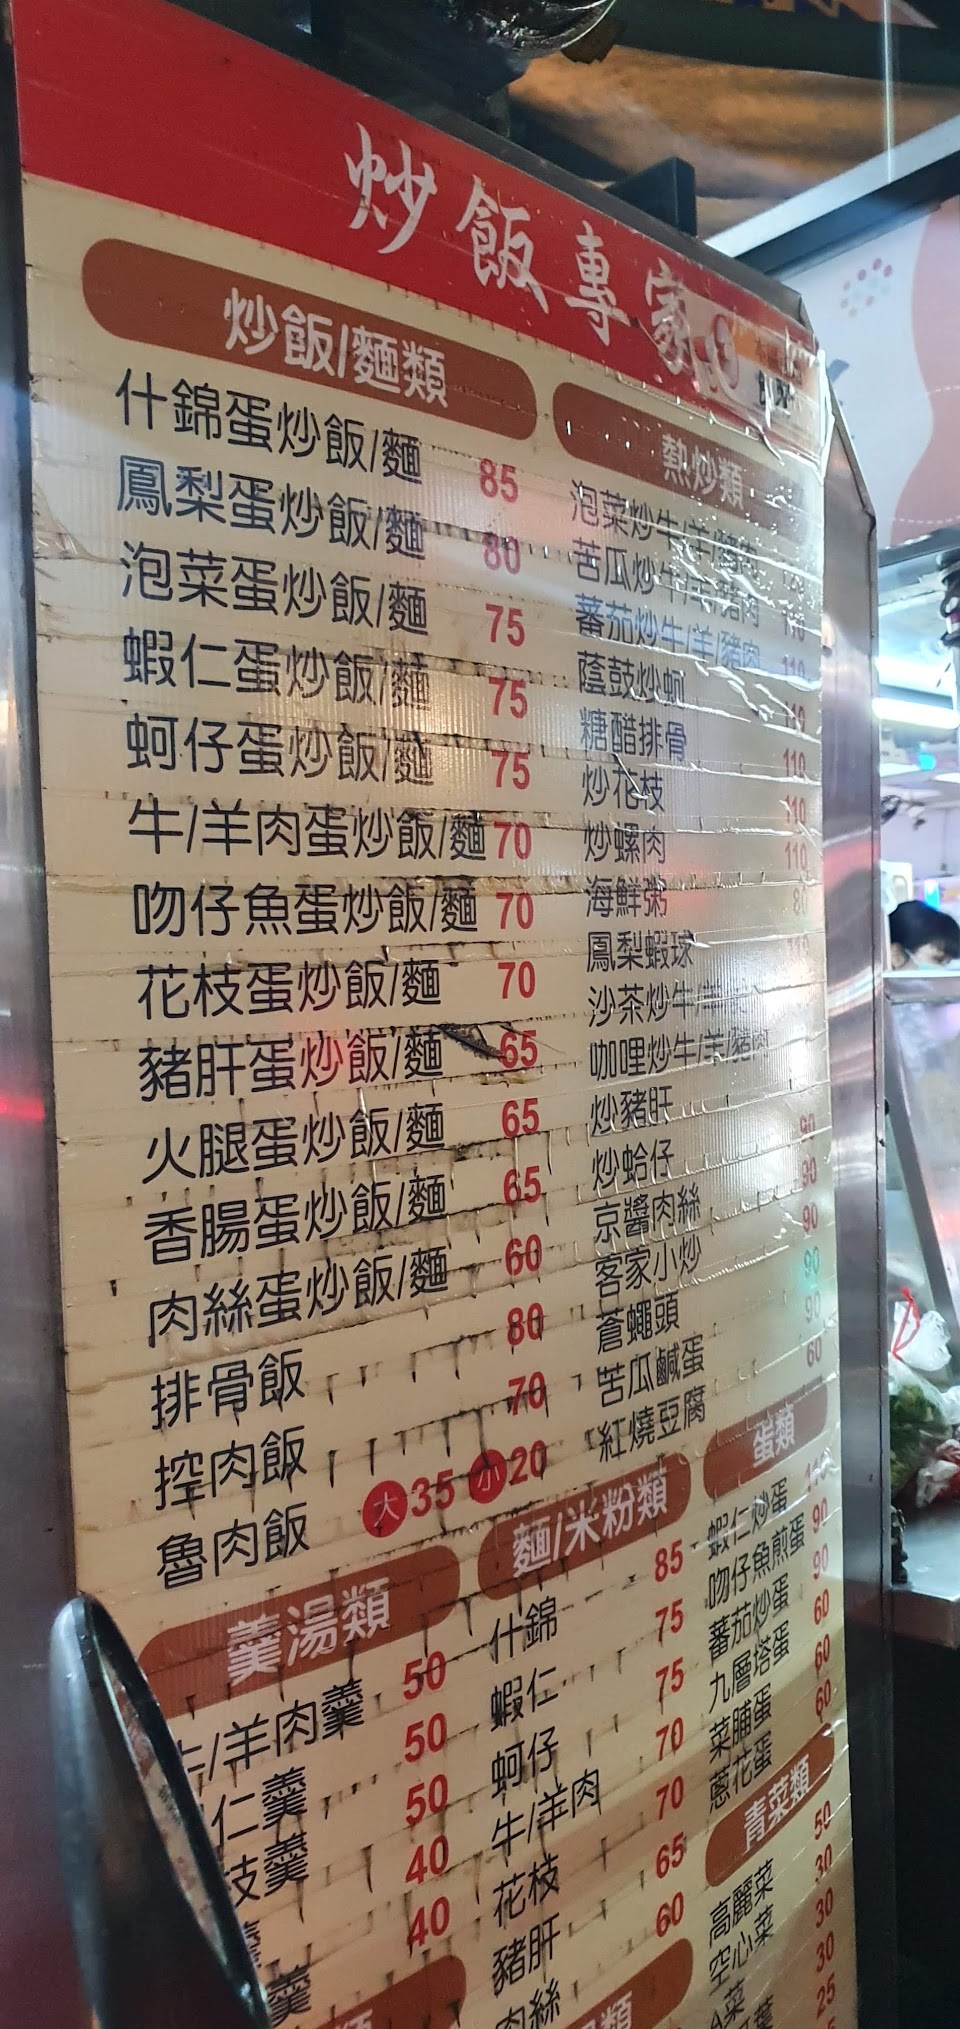 炒飯專家
炒飯/麵類
什錦蛋炒飯/麵 85
鳳梨蛋炒飯/麵 80
泡菜蛋炒飯/麵 75
蝦仁蛋炒飯/麵 75
蚵仔蛋炒飯/麵 75
牛/羊肉蛋炒飯/麵 70
吻仔魚蛋炒飯/麵 70
花枝蛋炒飯/麵 70
豬肝蛋炒飯/麵 65
火腿蛋炒飯/麵 65
香腸蛋炒飯/麵 65
肉絲蛋炒飯/麵 60
排骨飯 80
控肉飯 70
魯肉飯 大35 小20
熱炒類
泡菜炒牛/羊/豬肉
苦瓜炒牛/羊/豬肉 110
蕃茄炒牛/羊/豬肉 110
蔭鼓炒蚵 110
糖醋排骨 110
炒花枝 110
炒螺肉 110
海鮮粥 80
鳳梨蝦球
沙茶炒牛/羊
咖哩炒牛/羊/豬肉
炒豬肝 90
炒蛤仔 90
京醬肉絲 90
客家小炒 90
蒼蠅頭 90
苦瓜鹹蛋 60
紅燒豆腐
羹湯類
/羊肉羹 50
仁羹 50
枝羹 50
羹 40
羹 40
麵/米粉類
什錦 85
蝦仁 75
蚵仔 75
牛/羊肉 70
花枝 70
豬肝 65
肉絲 60
蛋類
蝦仁炒蛋
吻仔魚煎蛋 90
蕃茄炒蛋 90
九層塔蛋 60
菜脯蛋 60
蔥花蛋 60
青菜類
高麗菜 50
空心菜 30
A菜 30
30
25